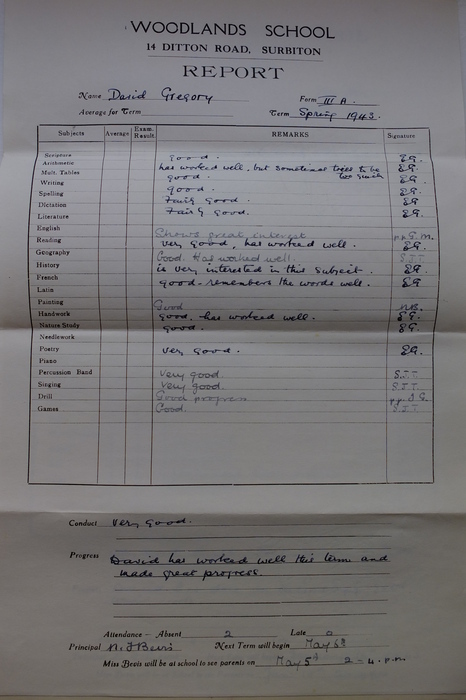 WOODLANDS SCHOOL
14 DITTON ROAD, SURBITON
REPORT
Name David Gregory Form III A.
Average for Term Term Spring 1943.
Subjects Average Exam. Result REMARKS Signature
Scripture good. EG.
Arithmetic has worked well, but sometimes tries to be too quick EG.
Mult. Tables good. EG.
Writing good. EG.
Spelling Fairly good. EG.
Dictation Fairly good. EG.
Literature
English Shows great interest
Reading very good, has worked well. EG.
Geography Good. Has worked well. S.J.T.
History is very interested in this subject. EG.
French good - remembers the words well. EG.
Latin
Painting Good
Handwork good, has worked well. EG.
Nature Study good. EG.
Needlework
Poetry very good. EG.
Piano
Percussion Band very good. S.J.T.
Singing very good. S.J.T.
Drill Good progress
Games Good. S.J.T.
Conduct Very Good.
Progress David has worked well this term and
made great progress.
Attendance - Absent 2 Late 0
Principal Next Term will begin May 6th
Miss Bevis will be at school to see parents on May 5th 2 - 4. p.m.